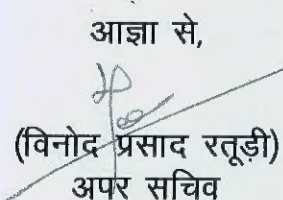 आज्ञा से,
(विनोद प्रसाद रतूड़ी)
अपर सचिव